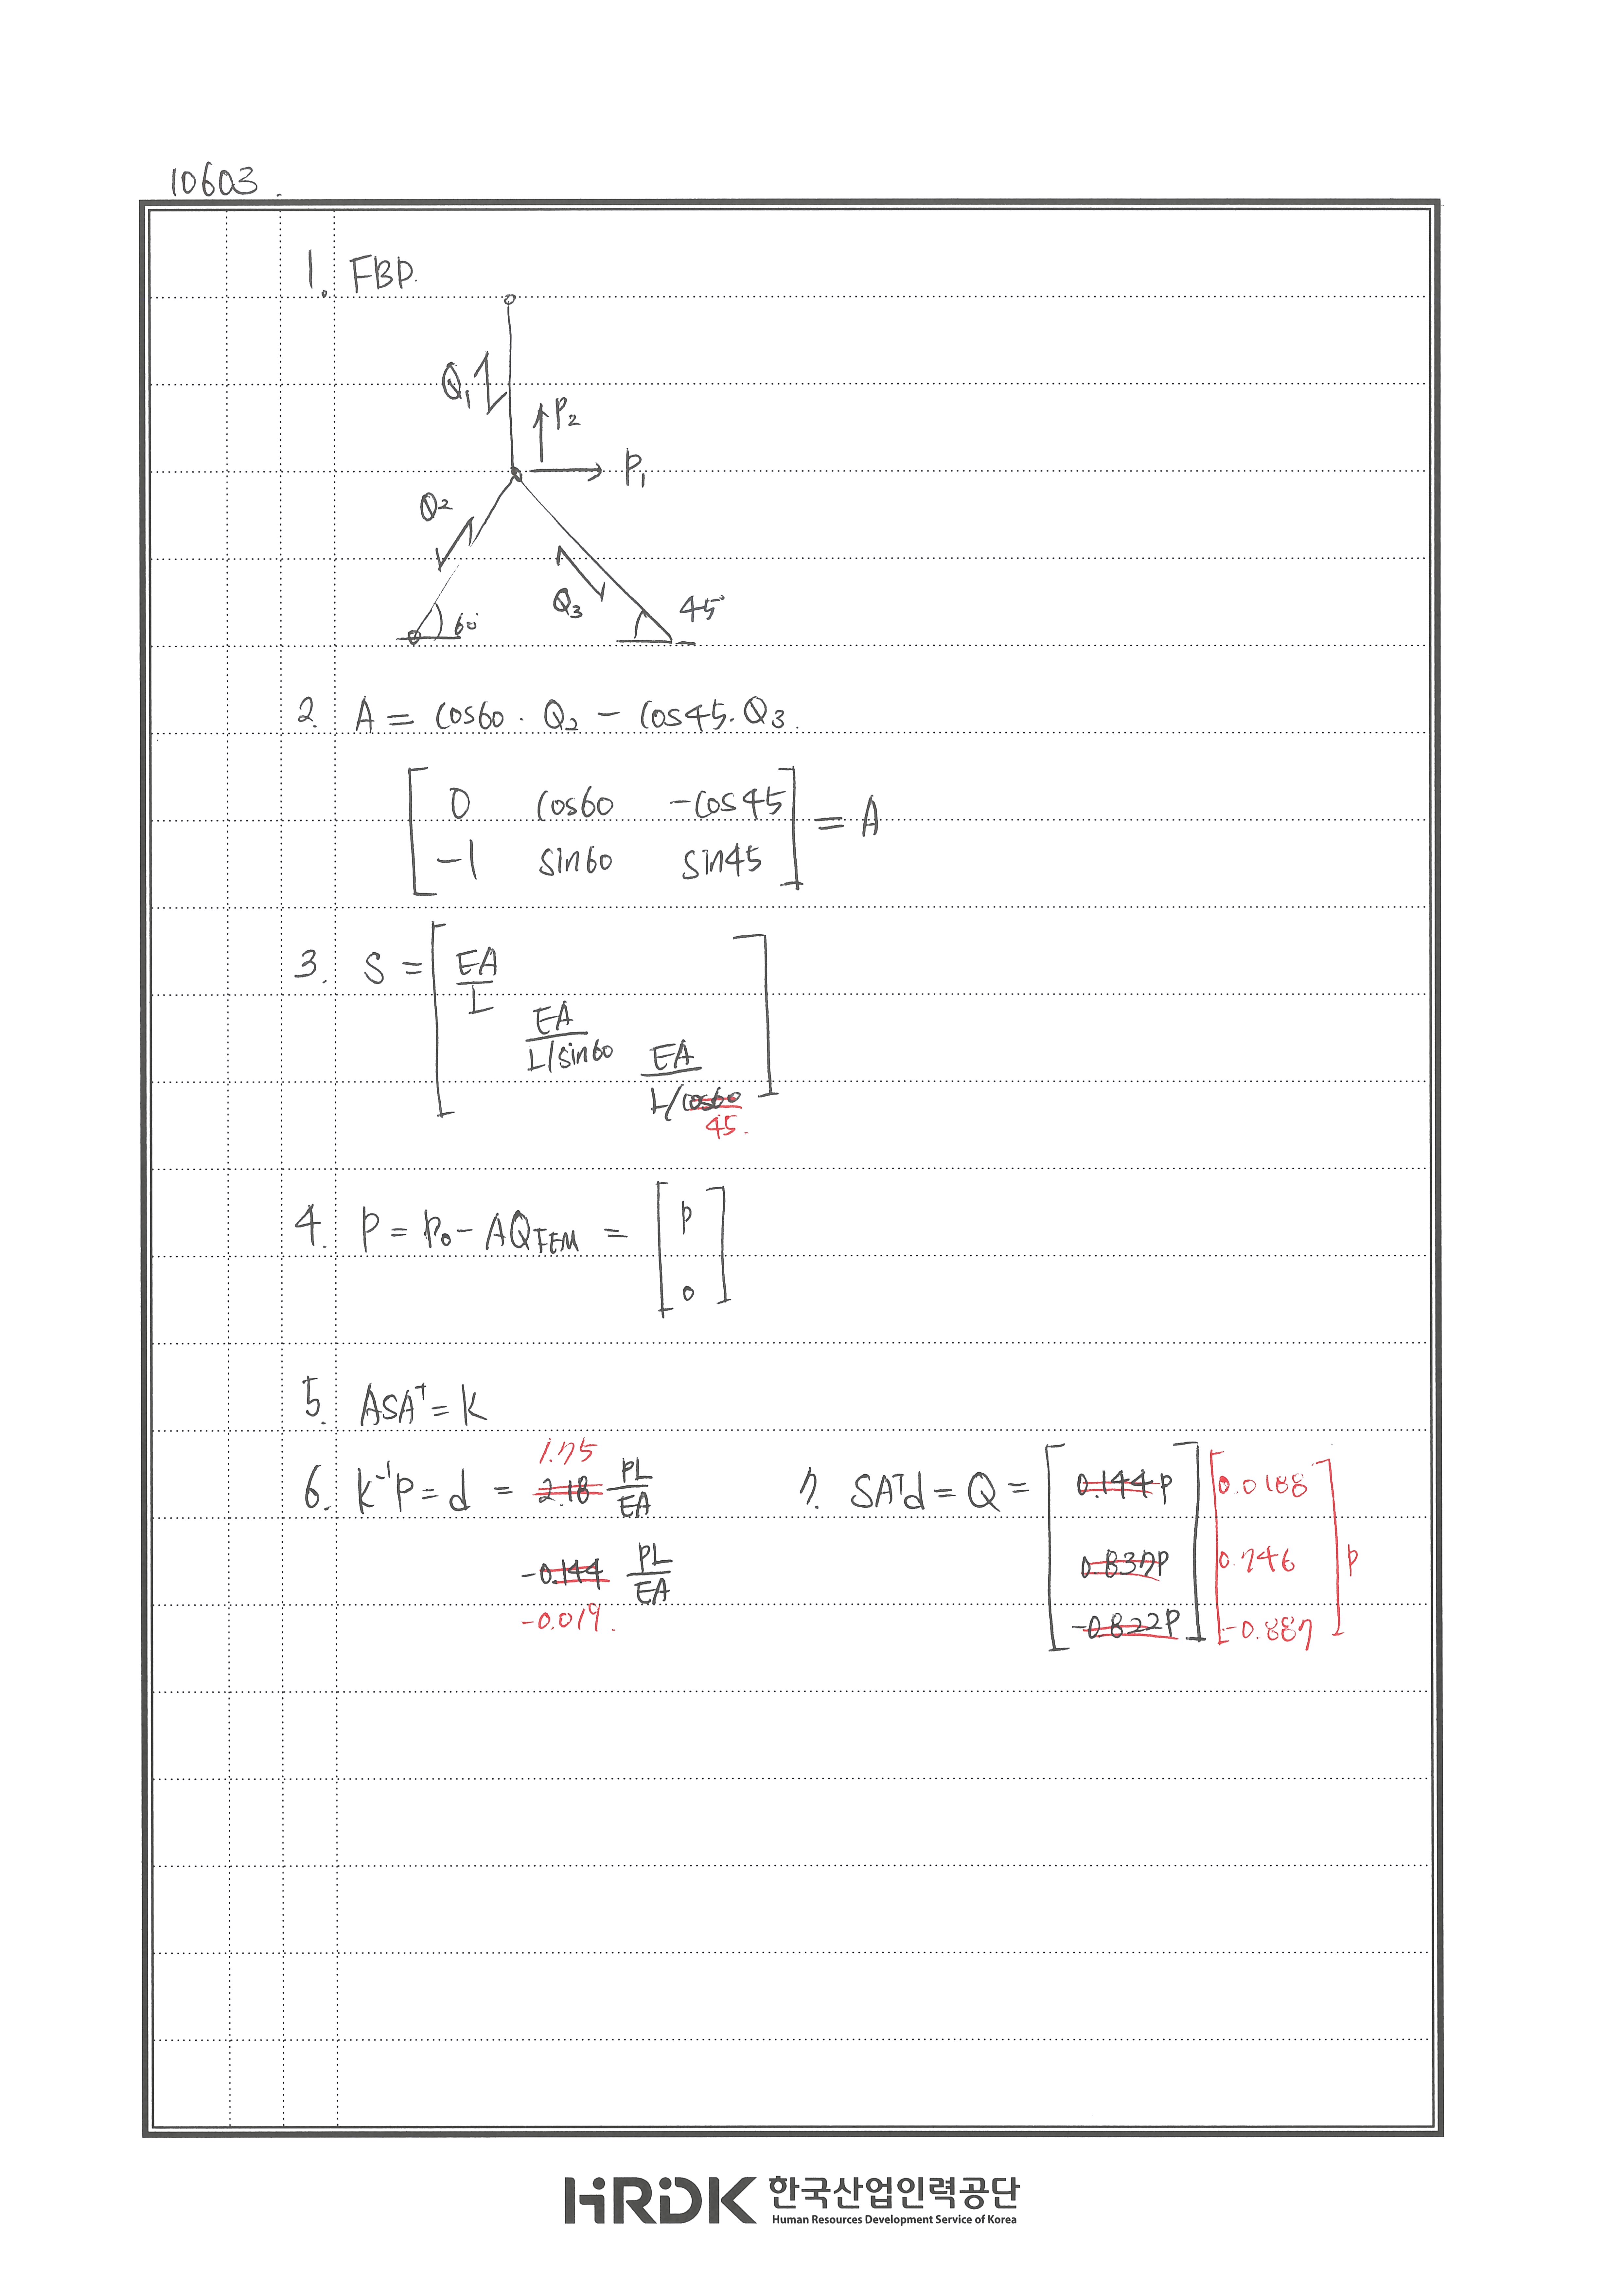 10603.
1. FBD.
Q1
P2
P1
Q2
Q3
60°
45°
2. A = cos60 · Q2 - cos45 · Q3.
[ 0 cos60 -cos45
-1 sin60 sin45 ] = A
3. S = [ EA/L
EA/(L/sin60)
EA/(L/cos60)
45. ]
4. P = P0 - AQFEM = [ P
0 ]
5. ASAᵀ = K
1.75
6. K⁻¹P = d = 2.18 PL/EA
-0.144 PL/EA
-0.019.
7. SAᵀd = Q = [ 0.144P
0.837P
-0.822P ]
[ 0.0188
0.746
-0.887 ] P
HRDK 한국산업인력공단
Human Resources Development Service of Korea